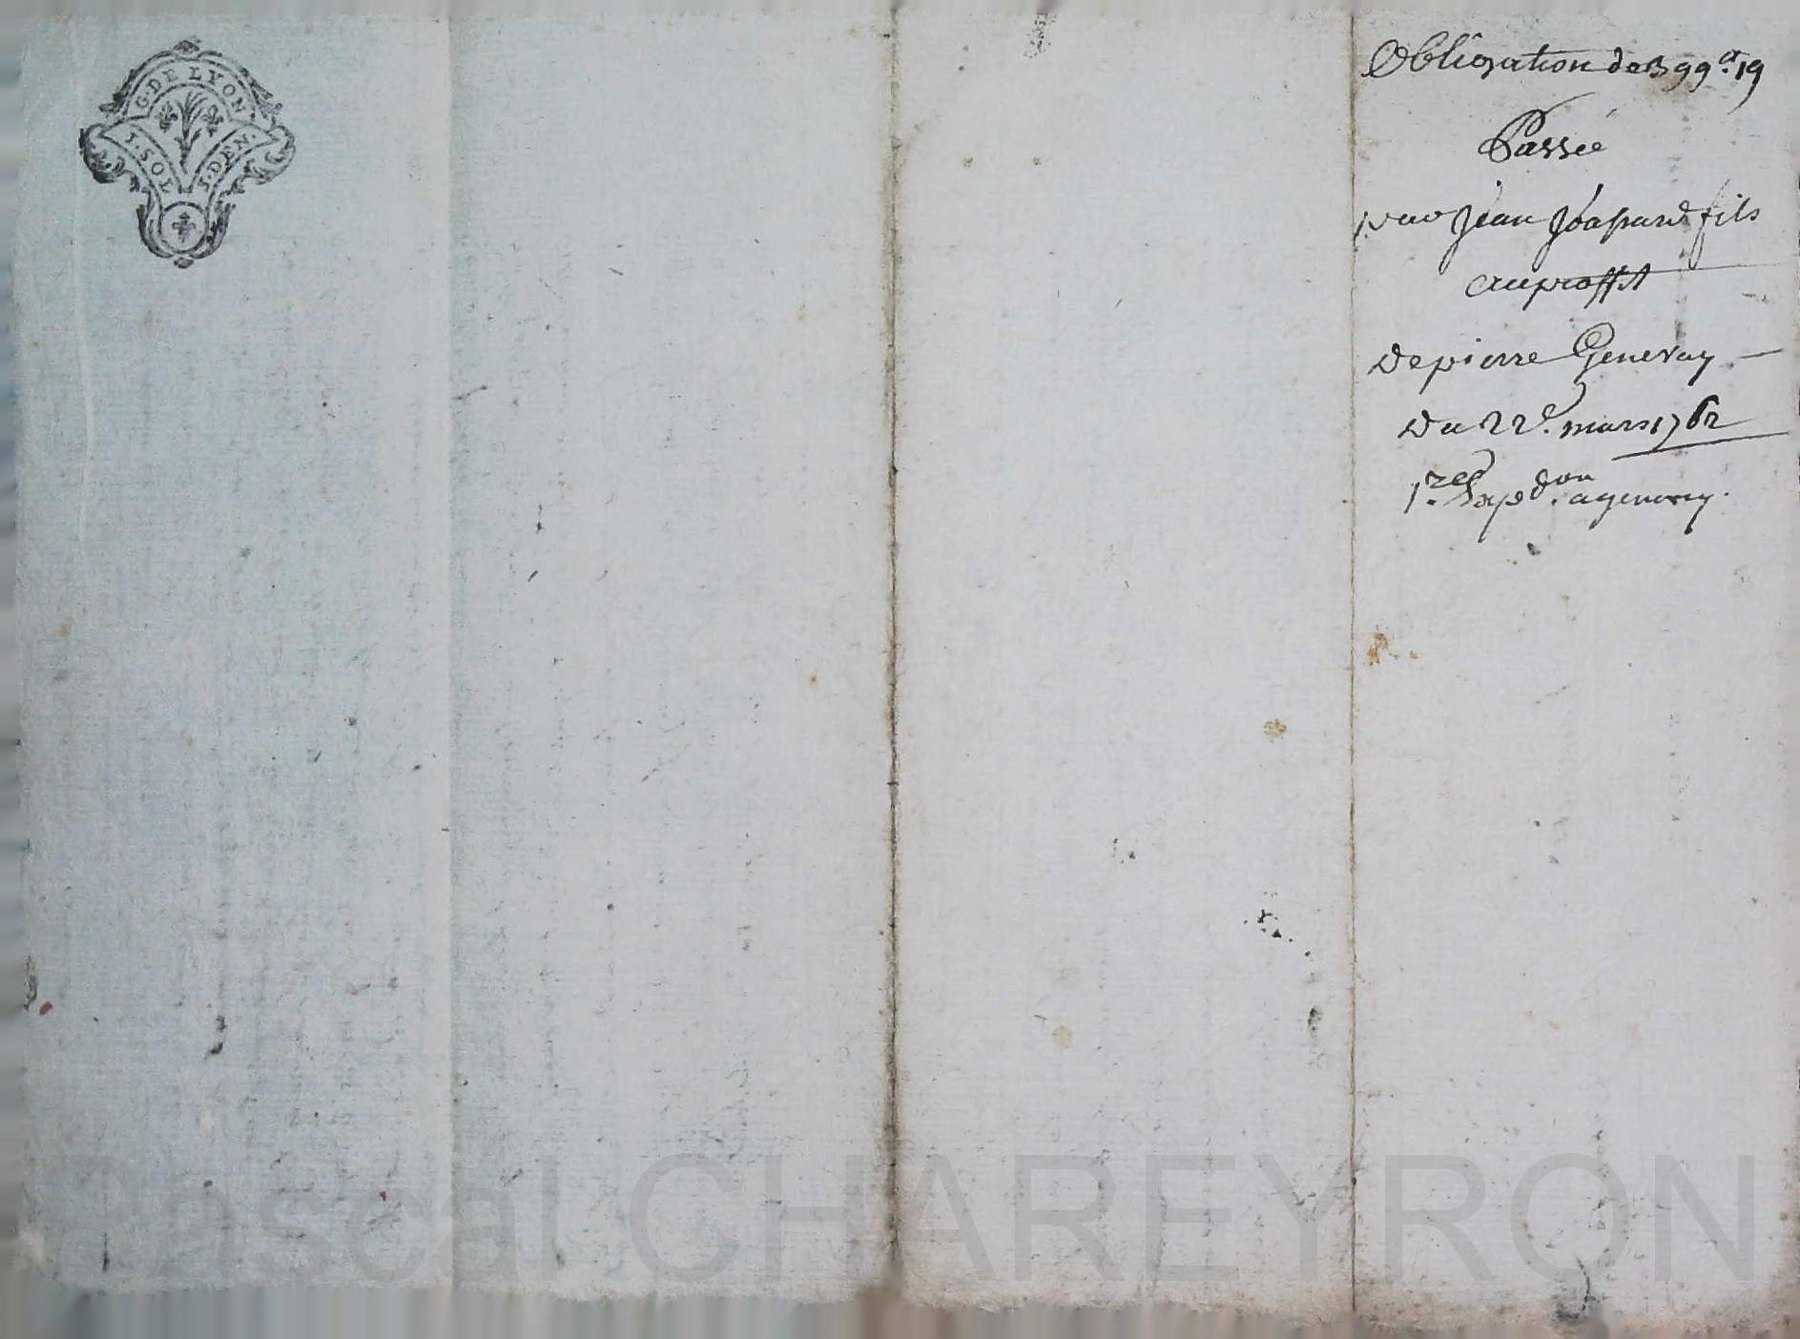 G. DE LYON
1. SOL 1. DEN.
Obligation de 399# 19
Passée
par Jean fils
au proffit
de pierre Genevay
Du 22e. mars 1762
1re. Expedon. a genevay.
Pascal CHAREYRON